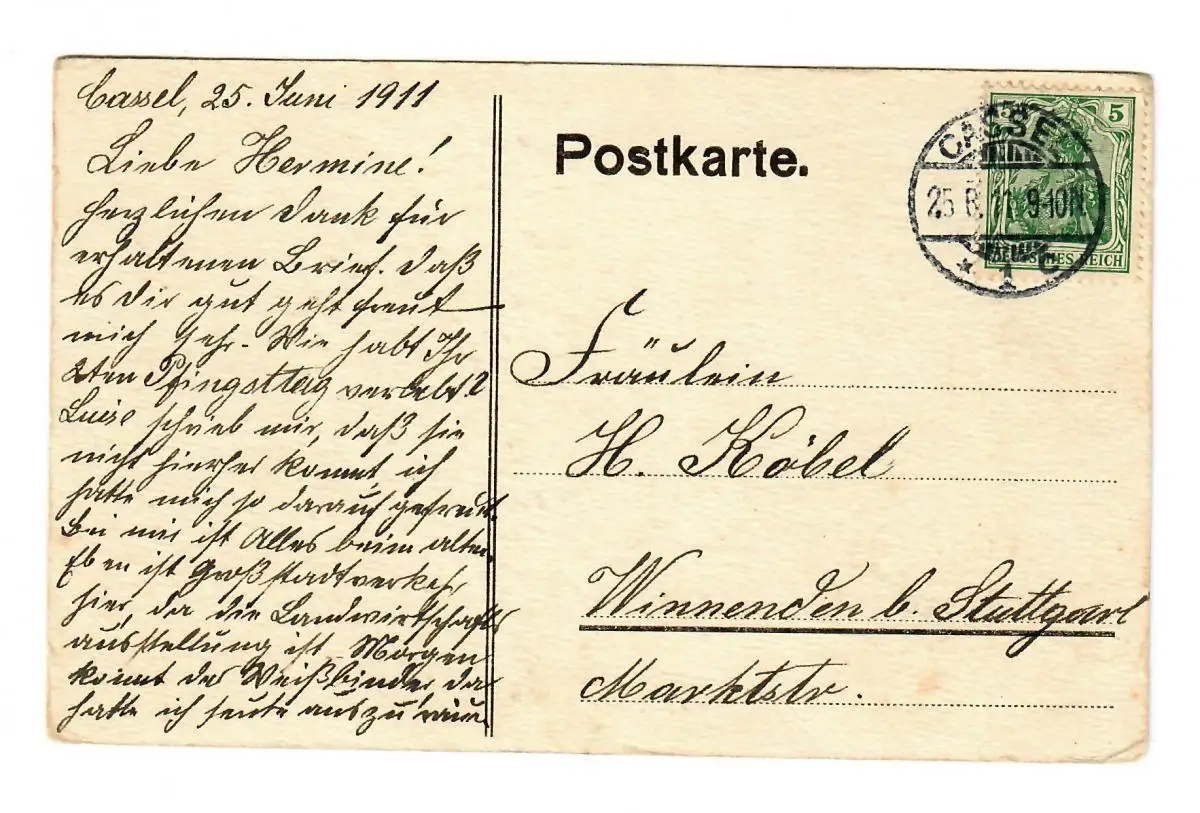 Cassel, 25. Juni 1911
Liebe Hermine!
Herzlichen Dank für
erhaltenen Brief. Daß
es Dir gut geht freut
mich sehr. Wie habt Ihr
2ten Pfingsttag verlebt?
Luise schrieb mir, daß sie
nicht hierher kommt, ich
hatte mich so darauf gefreut.
Bei mir ist Alles beim alten.
Eben ist Großstadtverkehr
hier, da die Landwirtschafts
ausstellung ist. Morgen
kommt der Weißbinder, da
hatte ich heute auszuräum
Postkarte.
5
CASSEL
25.6.11. 9-10N.
* 1 C
DEUTSCHES REICH
Fräulein
H. Köbel
Winnenden b. Stuttgart
Marktstr.